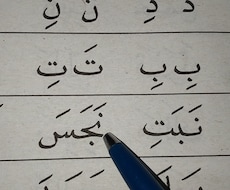 د دِ ن نِ
بِ بِ تَ تِ
نَبَتِ نَجَسَ